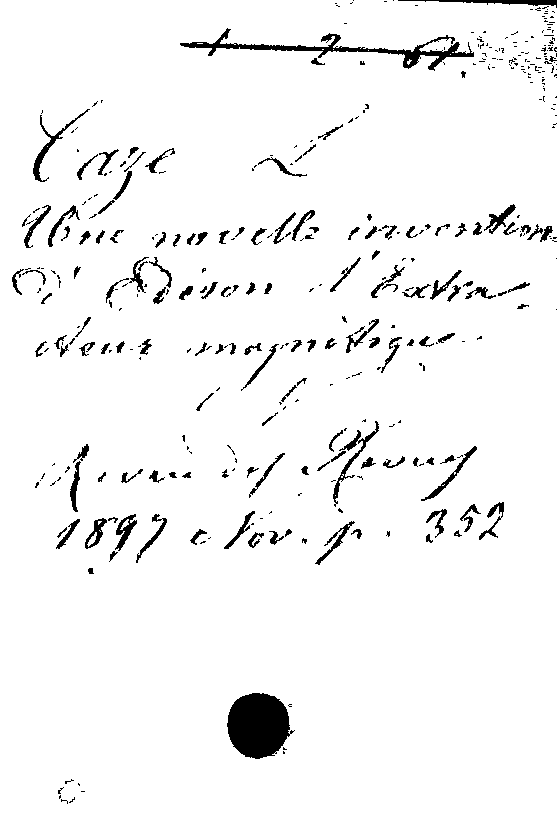 1 2. 61.
Caze L
Une novelle invention
d'Edison l'Extra-
cteur magnétique
Revue des Revues
1897 Nov. p. 352